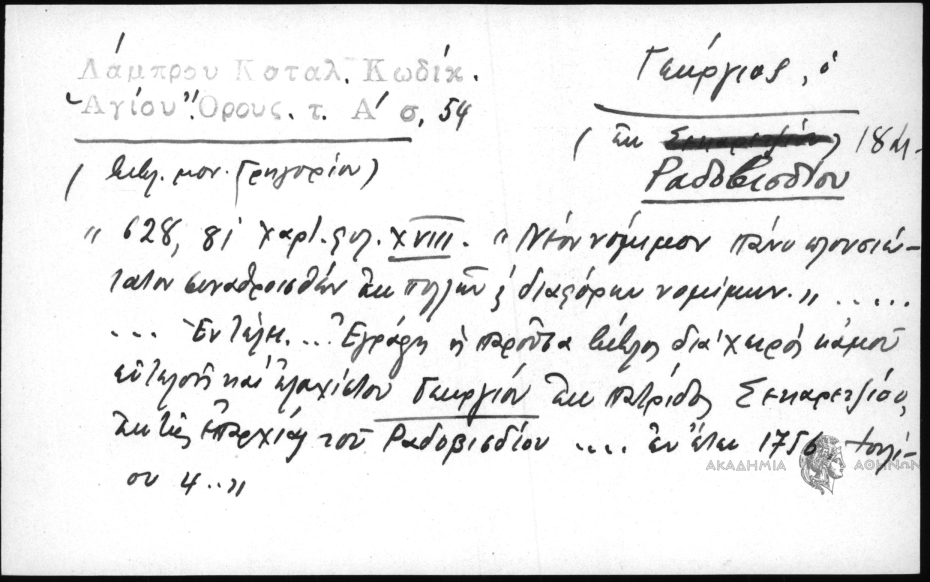 Λάμπρου Καταλ. Κωδίκ.
Ἁγίου Ὄρους. τ. Α΄ σ. 54
(Βιβλ. μον. Γρηγορίου)
Γεώργιος, ὁ
(ἐκ Σεκαρετζίου) 18
Ραδοβισδίου
" 628, 81 χαρτ. φυλ. XVIII. " Νέον νόμιμον πάνυ πλουσιώ-
τατον συναθροισθὲν ἐκ πολλῶν ς διαφόρων νομίμων. " .....
... Ἐν τέλει ... Ἐγράφη ἡ παροῦσα βίβλος διὰ χειρὸς κἀμοῦ
εὐτελοῦς καὶ ἐλαχίστου Γεωργίου ἐκ πατρίδος Σεκαρετζίου,
ἐκ τῆς ἐπαρχίας τοῦ Ραδοβισδίου .... ἐν ἔτει 1756, Ἰουλί-
ου 4 .. "
ΑΚΑΔΗΜΙΑ ΑΘΗΝΩΝ